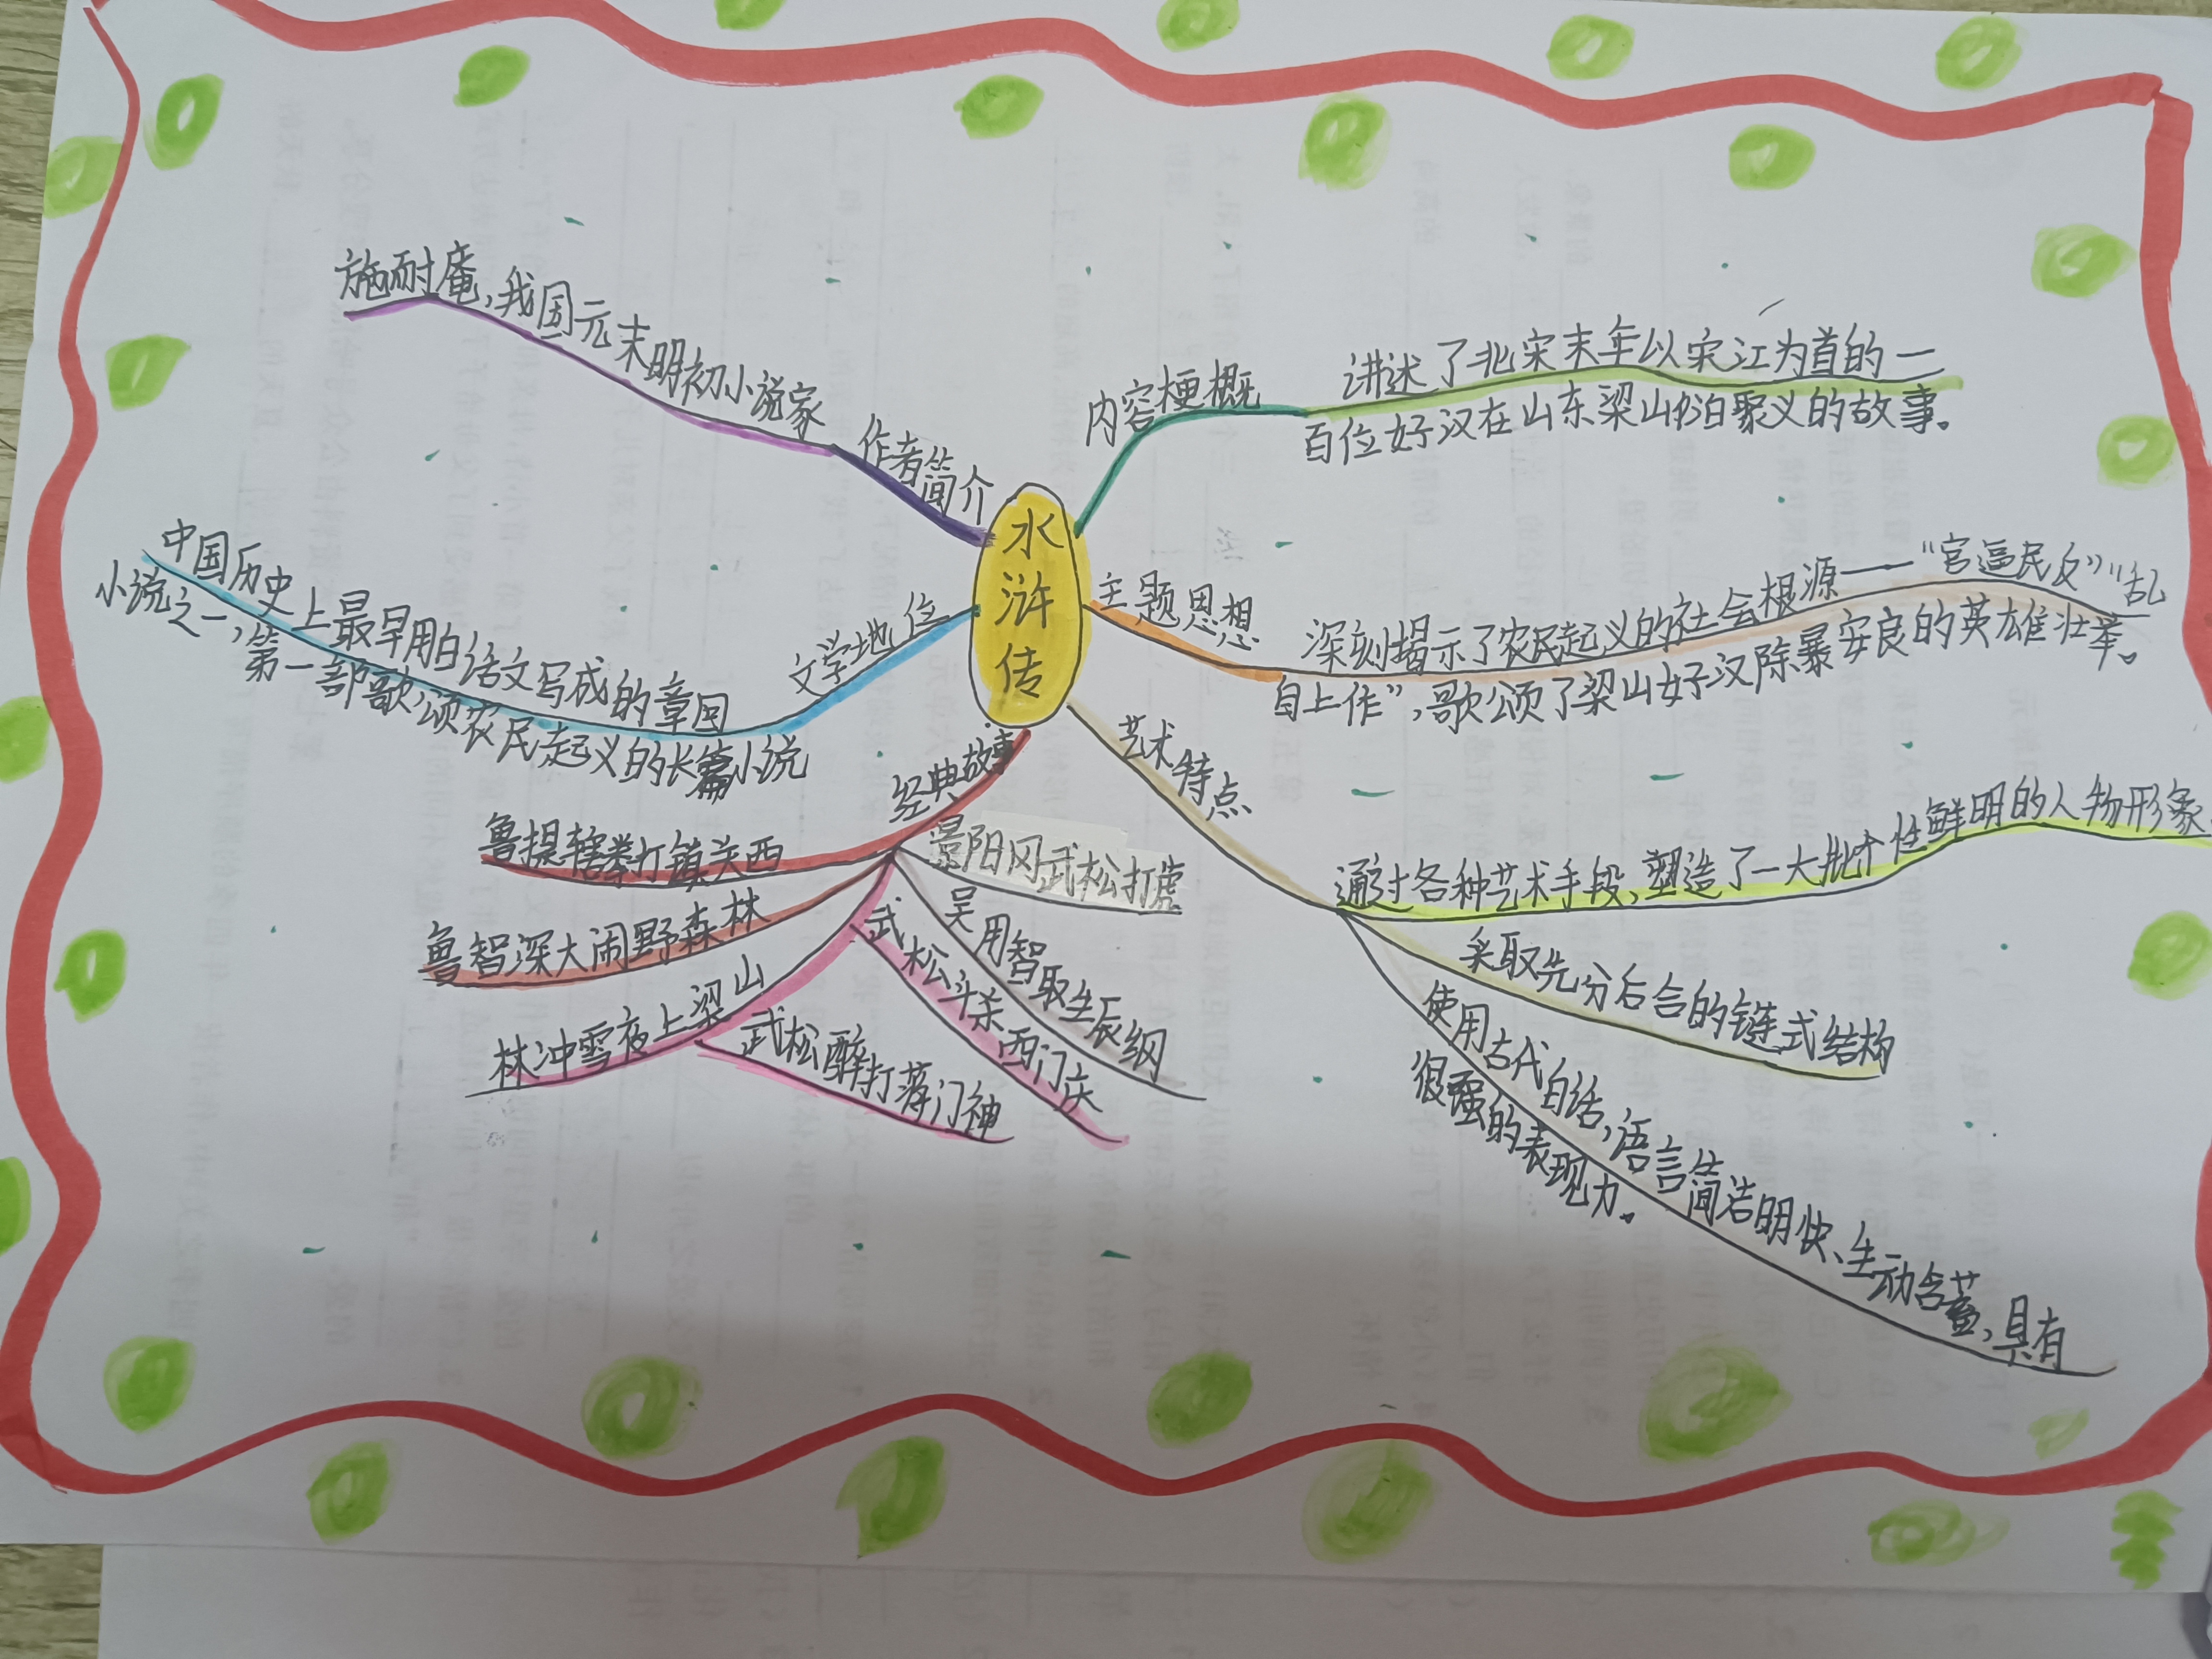 水浒传
作者简介
施耐庵,我国元末明初小说家
内容梗概
讲述了北宋末年以宋江为首的一
百位好汉在山东梁山泊聚义的故事。
主题思想
深刻揭示了农民起义的社会根源——“官逼民反”“乱
自上作”,歌颂了梁山好汉除暴安良的英雄壮举。
文学地位
中国历史上最早用白话文写成的章回
小说之一,第一部歌颂农民起义的长篇小说
经典故事
鲁提辖拳打镇关西
鲁智深大闹野森林
林冲雪夜上梁山
武松醉打蒋门神
武松斗杀西门庆
吴用智取生辰纲
景阳冈武松打虎
艺术特点
通过各种艺术手段,塑造了一大批个性鲜明的人物形象
采取先分后合的链式结构
使用古代白话,语言简洁明快、生动含蓄,具有
很强的表现力。